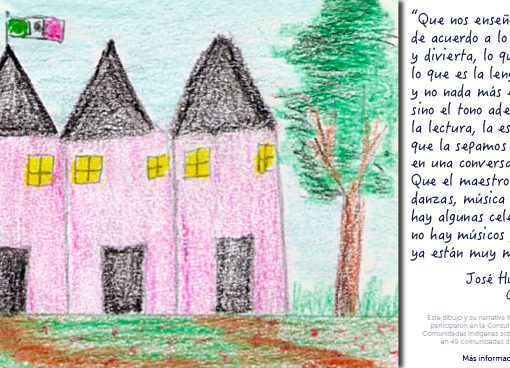 “Que nos enseñ
de acuerdo a lo
y divierta, lo qu
lo que es la leng
y no nada más
sino el tono ade
la lectura, la es
que la sepamos
en una conversa
Que el maestro
danzas, música
hay algunas cele
no hay músicos
ya están muy m
José Hu
Este dibujo y su narrativa
participaron en la Consul
Comunidades Indígenas sob
en 49 comunidades d
Más informac